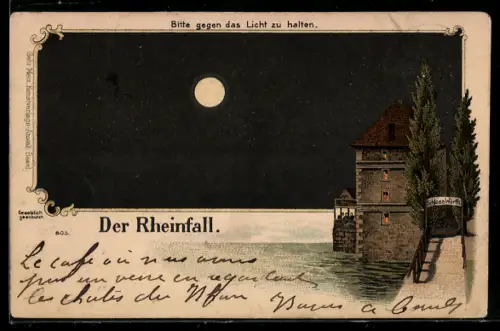 Bitte gegen das Licht zu halten.
Gesetzlich
geschützt
803.
Der Rheinfall.
Le café où nous avons
pris un verre en regardant
les chutes du Rhin